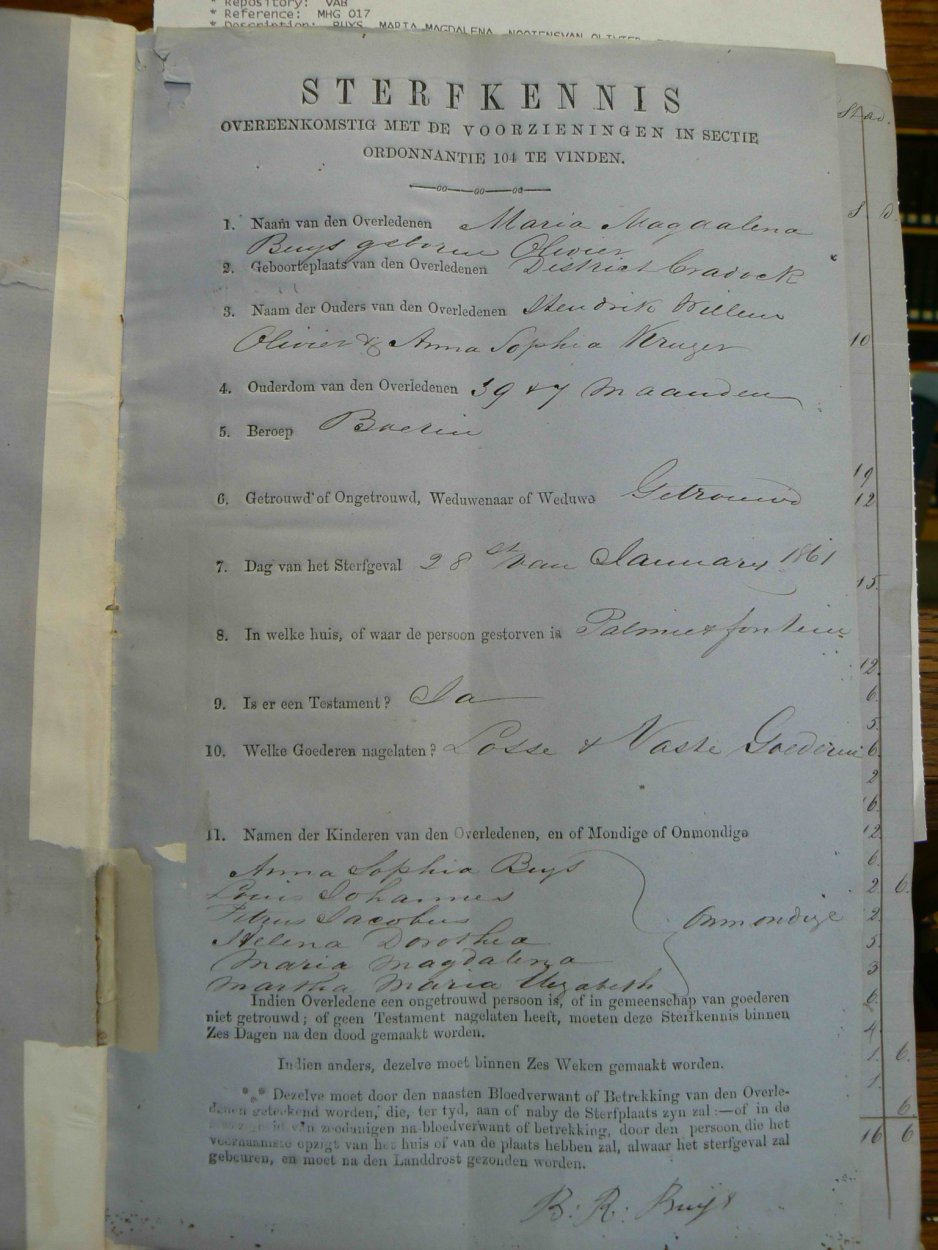 * Repository: VAB
* Reference: MHG 017
* Description: BUYS, MARIA MAGDALENA, NOOIENSVAN OLIVIER
STERFKENNIS
OVEREENKOMSTIG MET DE VOORZIENINGEN IN SECTIE
ORDONNANTIE 104 TE VINDEN.
1. Naam van den Overledenen Maria Magdalena
Buys geboren Olivier
2. Geboorteplaats van den Overledenen District Cradock
3. Naam der Ouders van den Overledenen Hendrik Willem
Olivier & Anna Sophia Kruger
4. Ouderdom van den Overledenen 39 & 7 Maanden
5. Beroep Boerin
6. Getrouwd of Ongetrouwd, Weduwenaar of Weduwe Getrouwd
7. Dag van het Sterfgeval 28 st van January 1861
8. In welke huis, of waar de persoon gestorven is Palmietfontein
9. Is er een Testament? Ja
10. Welke Goederen nagelaten? Losse & Vaste Goederen
11. Namen der Kinderen van den Overledenen, en of Mondige of Onmondige
Anna Sophia Buys
Louis Johannes
Petrus Jacobus
Onmondige
Helena Dorothea
Maria Magdalena
Martha Maria Elizabeth
Indien Overledene een ongetrouwd persoon is, of in gemeenschap van goederen
niet getrouwd; of geen Testament nagelaten heeft, moeten deze Sterfkennis binnen
Zes Dagen na den dood gemaakt worden.
Indien anders, dezelve moet binnen Zes Weken gemaakt worden.
*** Dezelve moet door den naasten Bloedverwant of Betrekking van den Overle-
denen geteekend worden, die, ter tyd, aan of naby de Sterfplaats zyn zal:—of in de
van zoodanigen na-bloedverwant of betrekking, door den persoon die het
voornaamste opzigt van het huis of van de plaats hebben zal, alwaar het sterfgeval zal
gebeuren, en moet na den Landdrost gezonden worden.
B. R. Buys
10
19
12
15
12
6
5
6
2
6
12
6
2 6
2
5
3
6
4
1 6
1
6
16 6